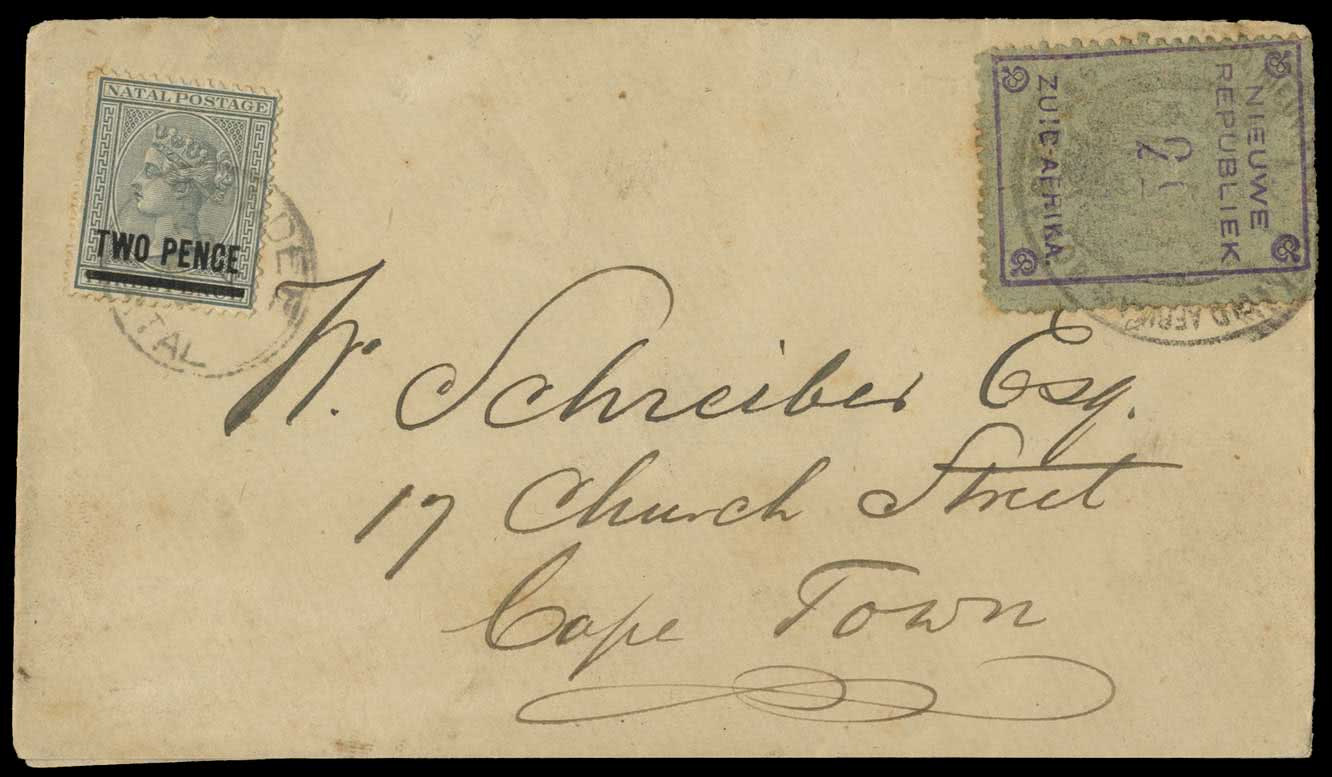 NATAL POSTAGE
TWO PENCE
NIEUWE
REPUBLIEK
ZUID-AFRIKA.
W. Schreiber Esq.
17 Church Street
Cape Town